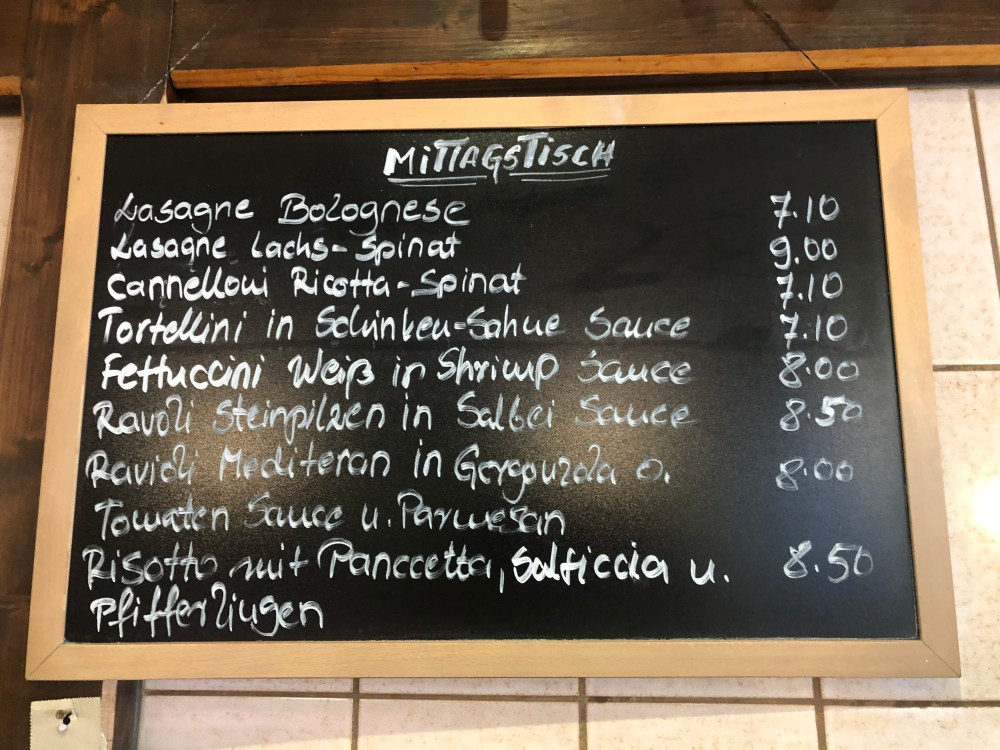 MITTAGSTISCH
Lasagne Bolognese 7.10
Lasagne Lachs-Spinat 9.00
Cannelloni Ricotta-Spinat 7.10
Tortellini in Schinken-Sahne Sauce 7.10
Fettuccini Weiß in Shrimp Sauce 8.00
Ravoli Steinpilzen in Salbei Sauce 8.50
Ravioli Mediteran in Gorgonzola o. 8.00
Tomaten Sauce u. Parmesan
Risotto mit Panccetta, Salficcia u. 8.50
Pfifferlingen